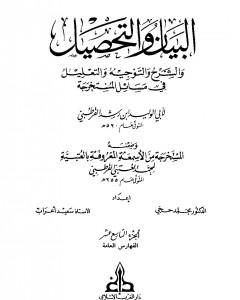 البيان والتحصيل
والشرح والتوجيه والتعليل
في مسائل المستخرجة
لأبي الوليد ابن رشد القرطبي
المتوفى عام ٥٢٠ هـ
وضمنه
المستخرجة من الأسمعة المعروفة بالعتبية
لمحمد العتبي القرطبي
المتوفى عام ٢٥٥ هـ
إعداد
الدكتور محمد حجي الأستاذ سعيد أعراب
الجزء التاسع عشر
الفهارس العامة
دار الغرب الإسلامي